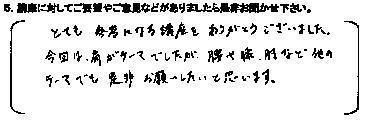 5. 講座に対してご要望やご意見などがありましたら是非お聞かせ下さい。
とても参考になる講座をありがとうございました。
今回は、肩がテーマでしたが、腰や膝、肘など他の
テーマでも是非お願いしたいと思います。